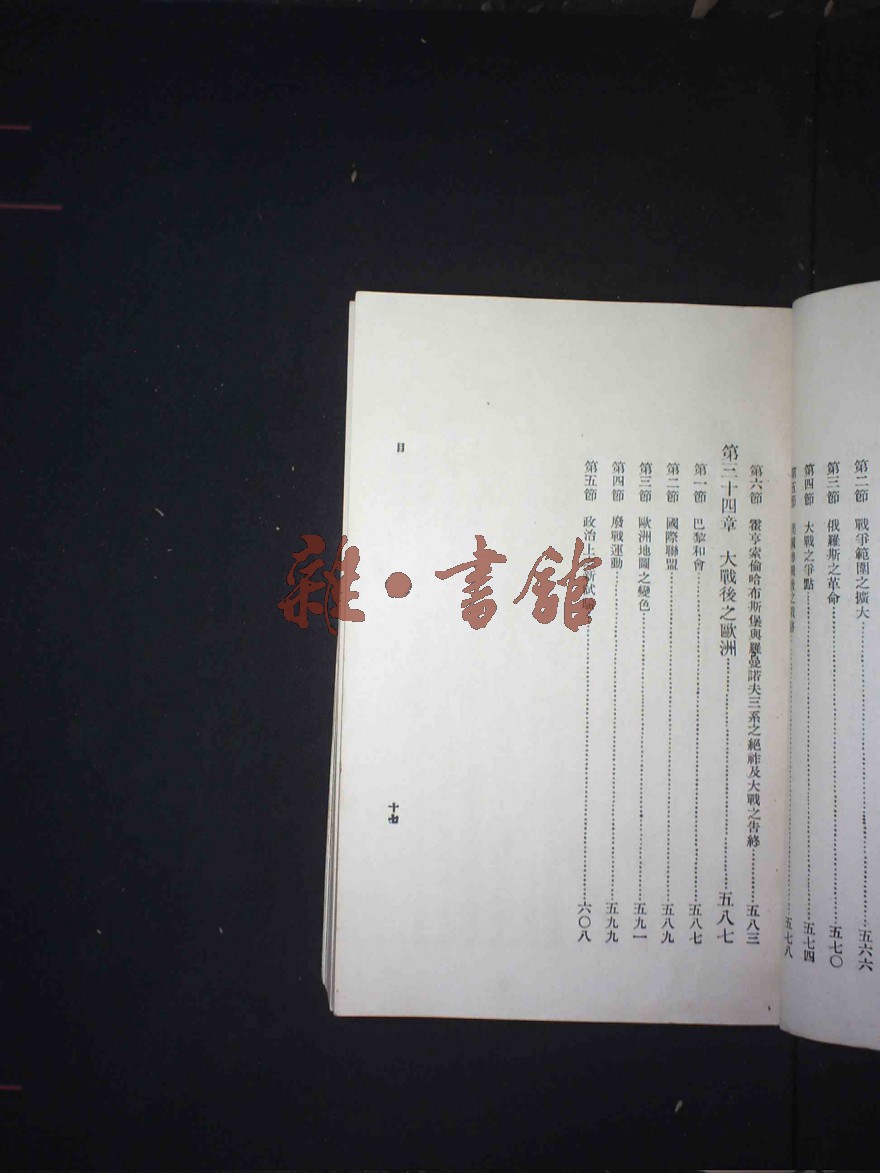 第二節　戰爭範圍之擴大……五六六
第三節　俄羅斯之革命……五七〇
第四節　大戰之爭點……五七四
第五節……五七八
第六節　霍亨索倫哈布斯堡與羅曼諾夫三系之絕祚及大戰之告終……五八三
第三十四章　大戰後之歐洲……五八七
第一節　巴黎和會……五八七
第二節　國際聯盟……五八九
第三節　歐洲地圖之變色……五九一
第四節　廢戰運動……五九九
第五節　政治上　新試……六〇八
目
十七
雜·書館